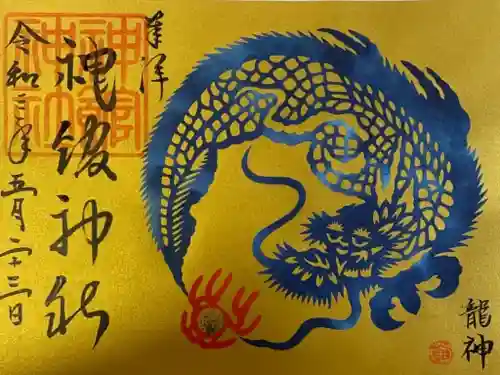 奉拝
神館神社
令和三年五月二十三日
龍神